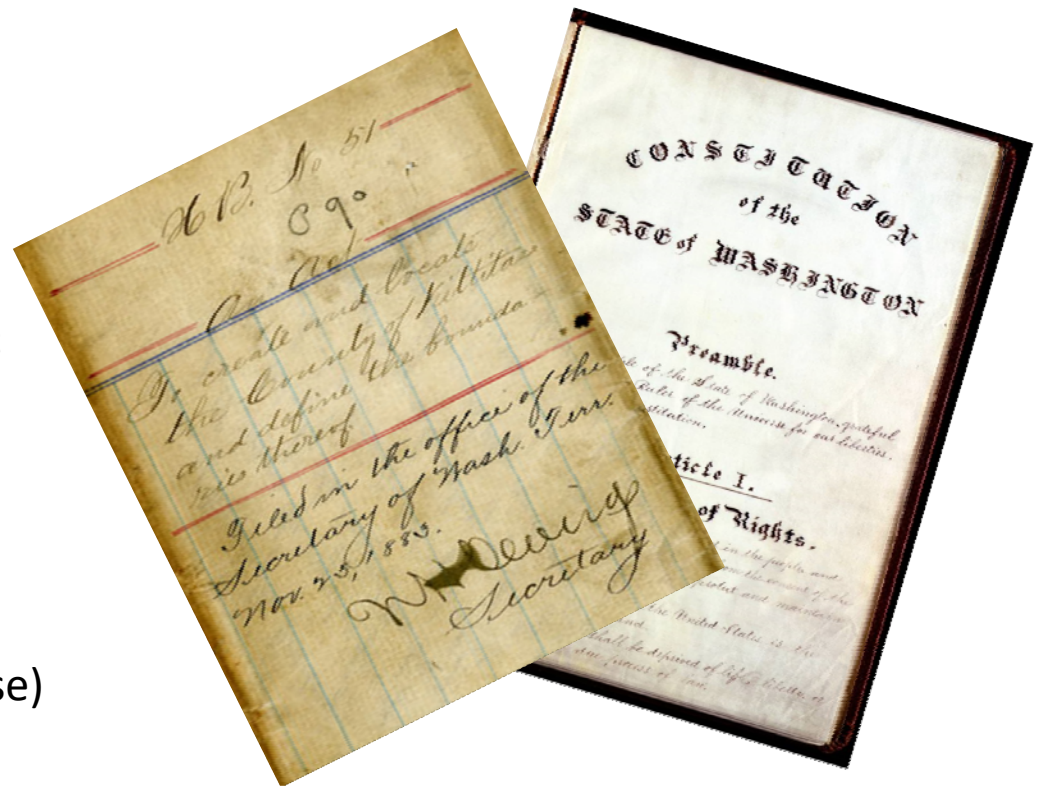 H B. No 51
An Act
To create and locate
the County of Kittitas
and define the bounda-
ries thereof
Filed in the office of the
Secretary of Wash. Terr.
Nov. 23, 1883.
Secretary
CONSTITUTION
of the
STATE of WASHINGTON
Preamble.
of the State of Washington, grateful
Ruler of the Universe for our liberties,
stitution.
ticle I.
of Rights.
in the people and
from the consent of the
protect and maintain
the United States is the
land.
shall be deprived of life, liberty, or
due process of law.
se)